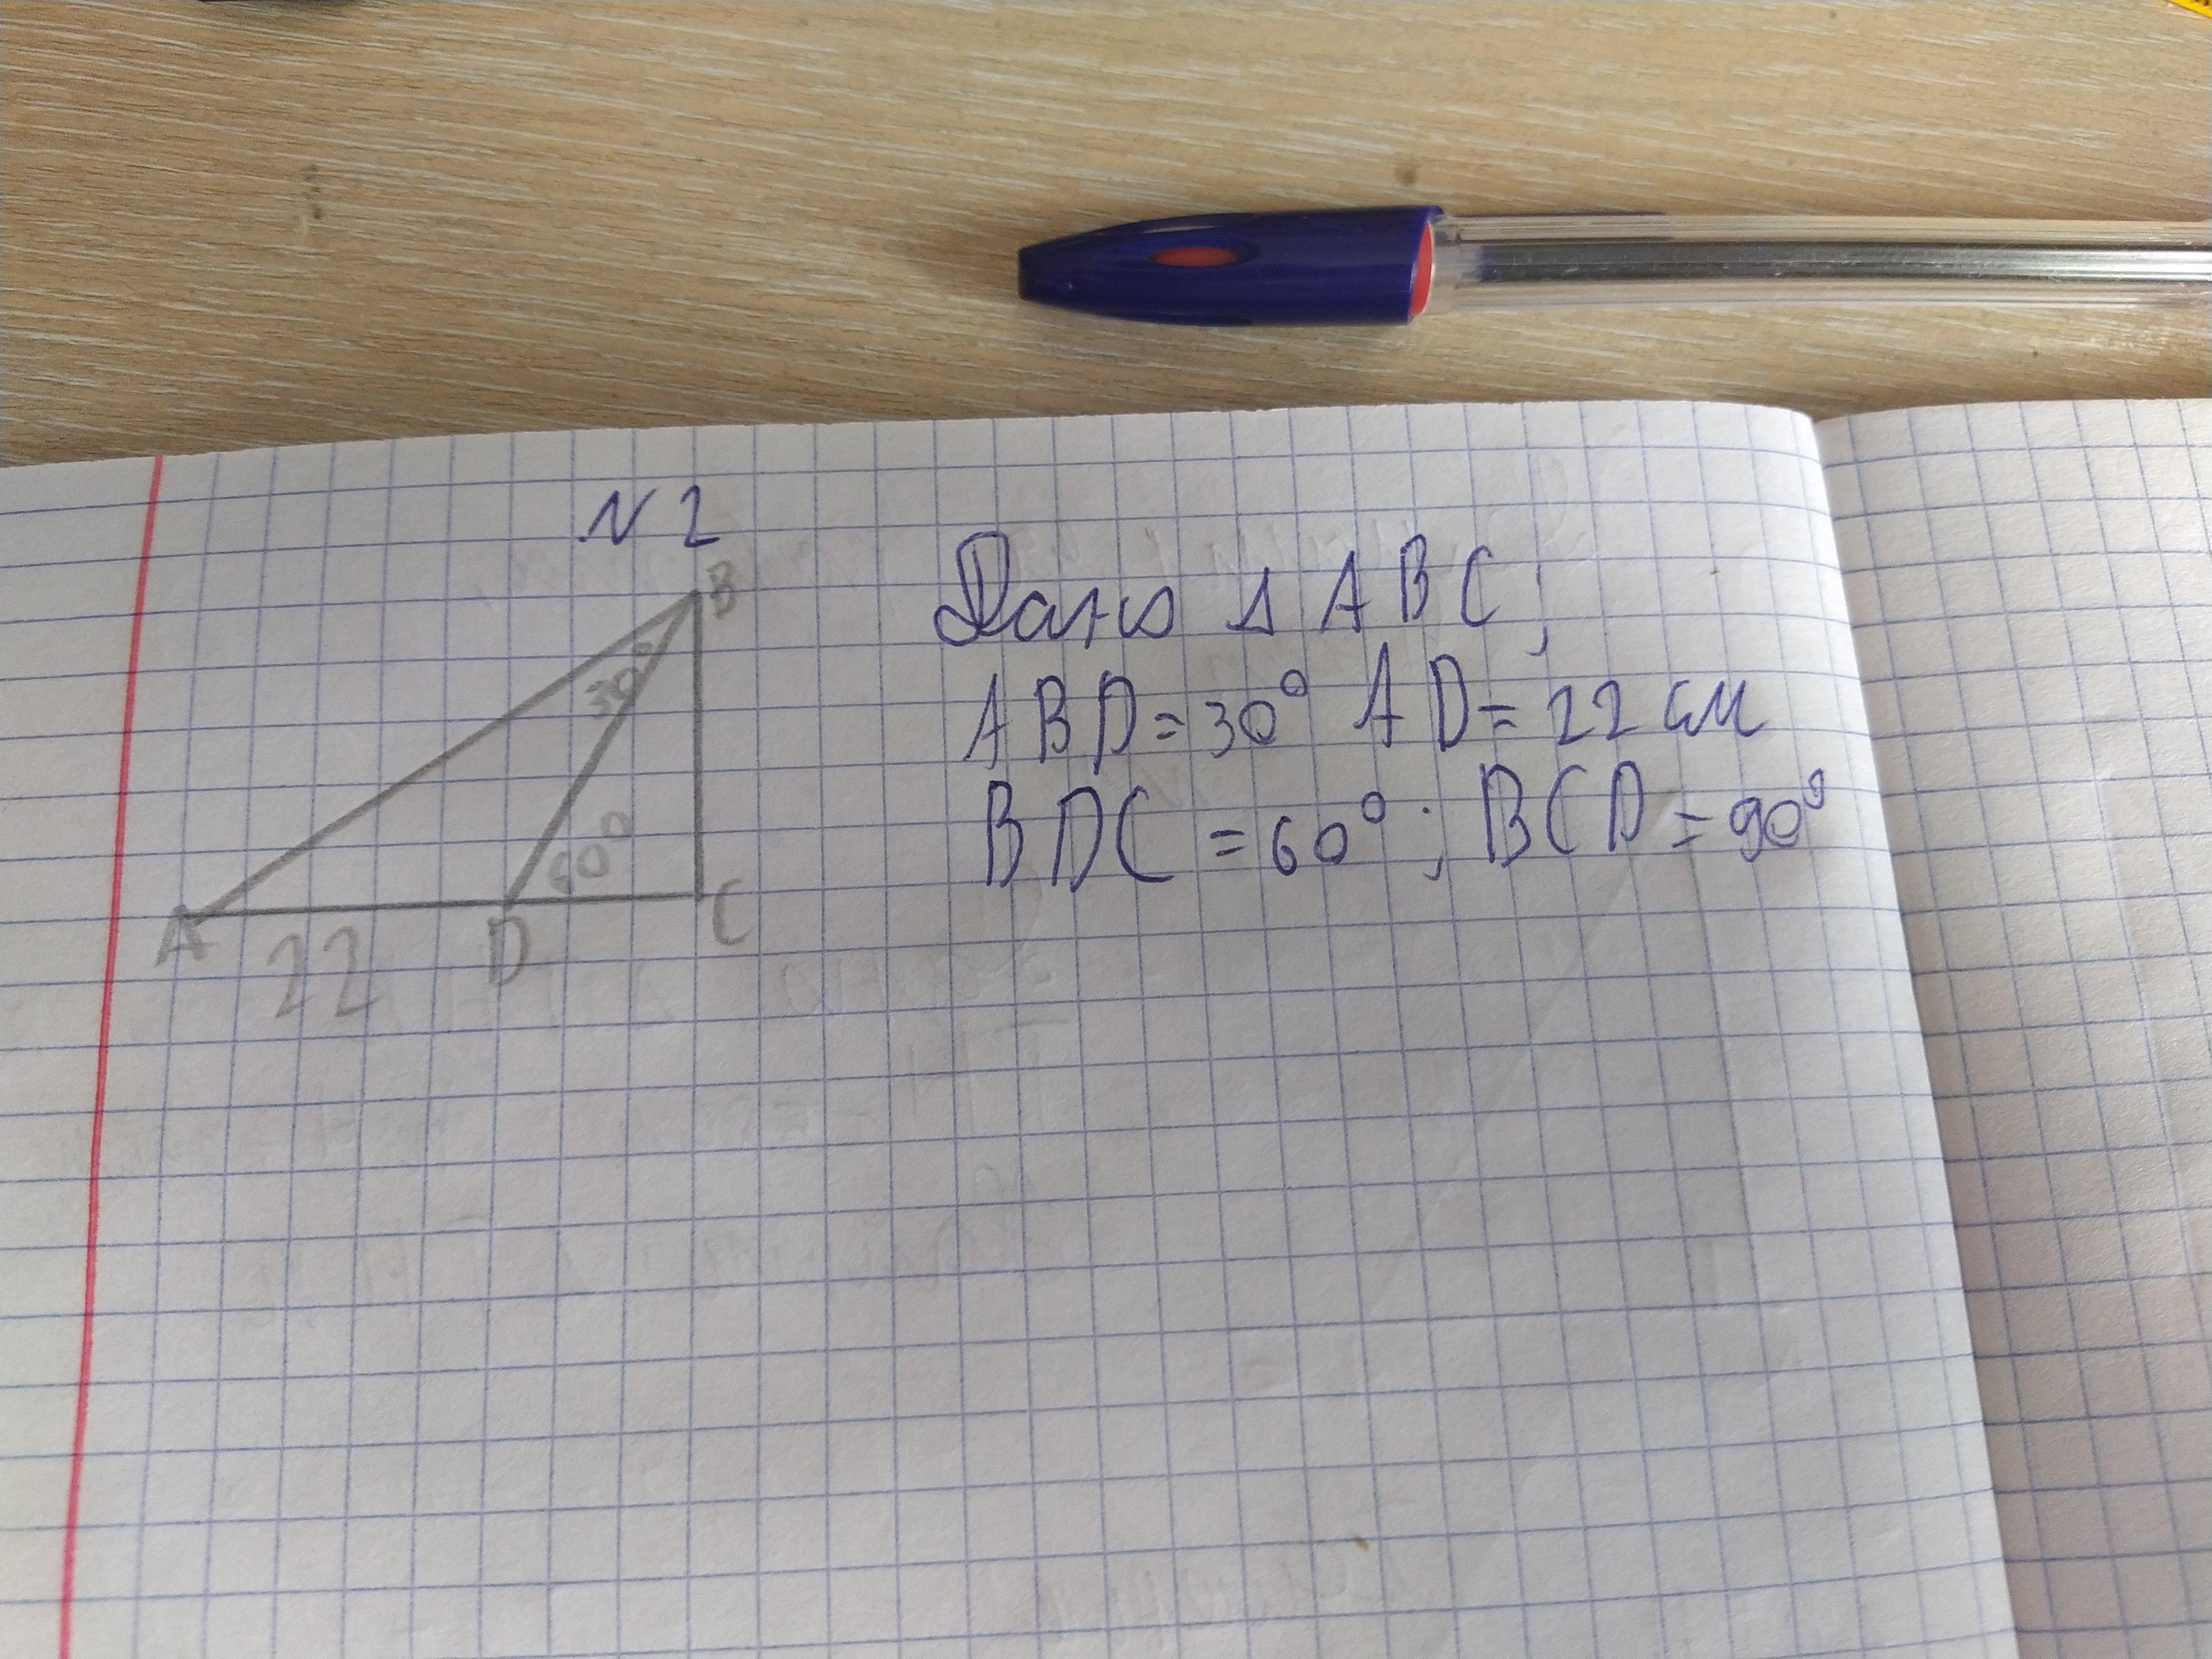 N 2
B
30°
60°
A
22
D
C
Дано Δ ABC;
ABD=30° AD=22 см
BDC=60°; BCD=90°